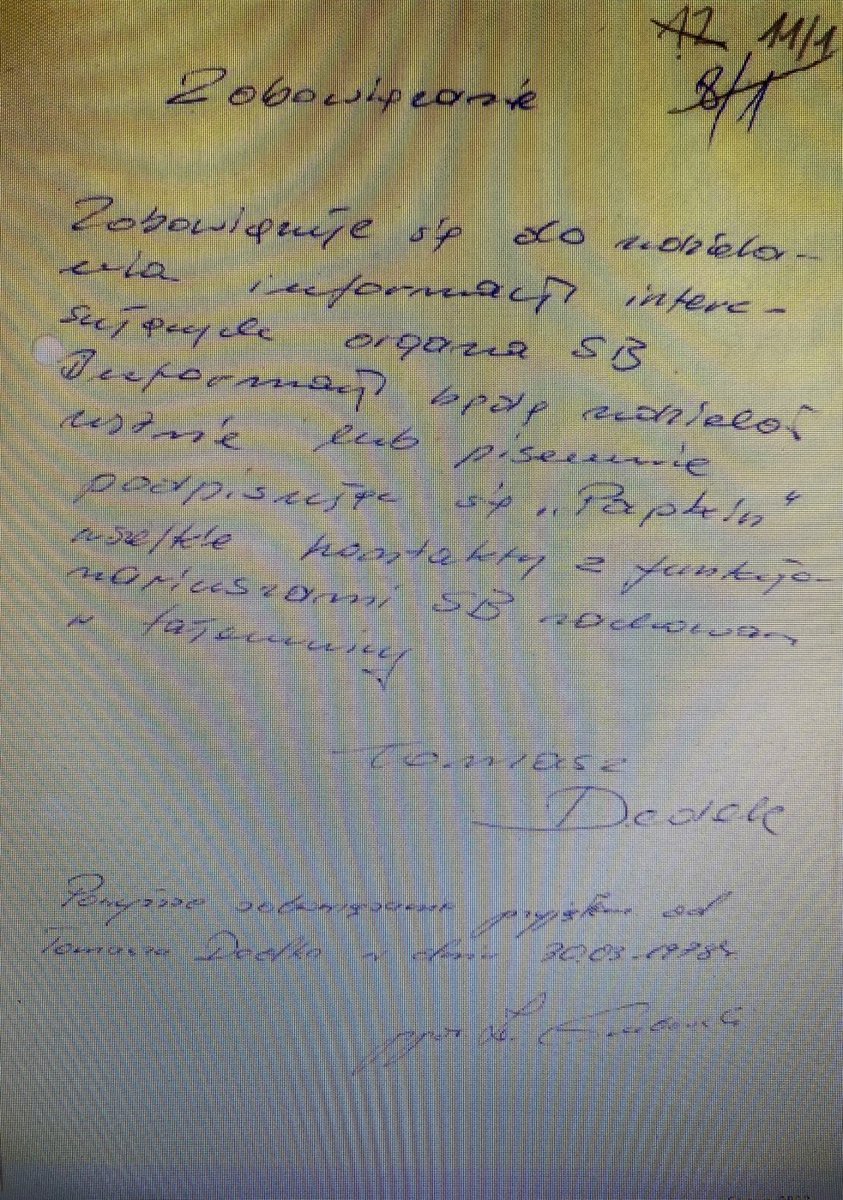 12 11/1
8/1
Zobowiązanie
Zobowiązuję się do udziela-
nia informacji intere-
sujących organa SB
Informacji będę udzielał
ustnie lub pisemnie
podpisując się „Papkin”
wszelkie kontakty z funkcjo-
nariuszami SB zachowam
w tajemnicy
Tomasz
Dodek
Powyższe zobowiązanie przyjąłem od
Tomasza Dodka w dniu 30.03.1978r.
ppor.